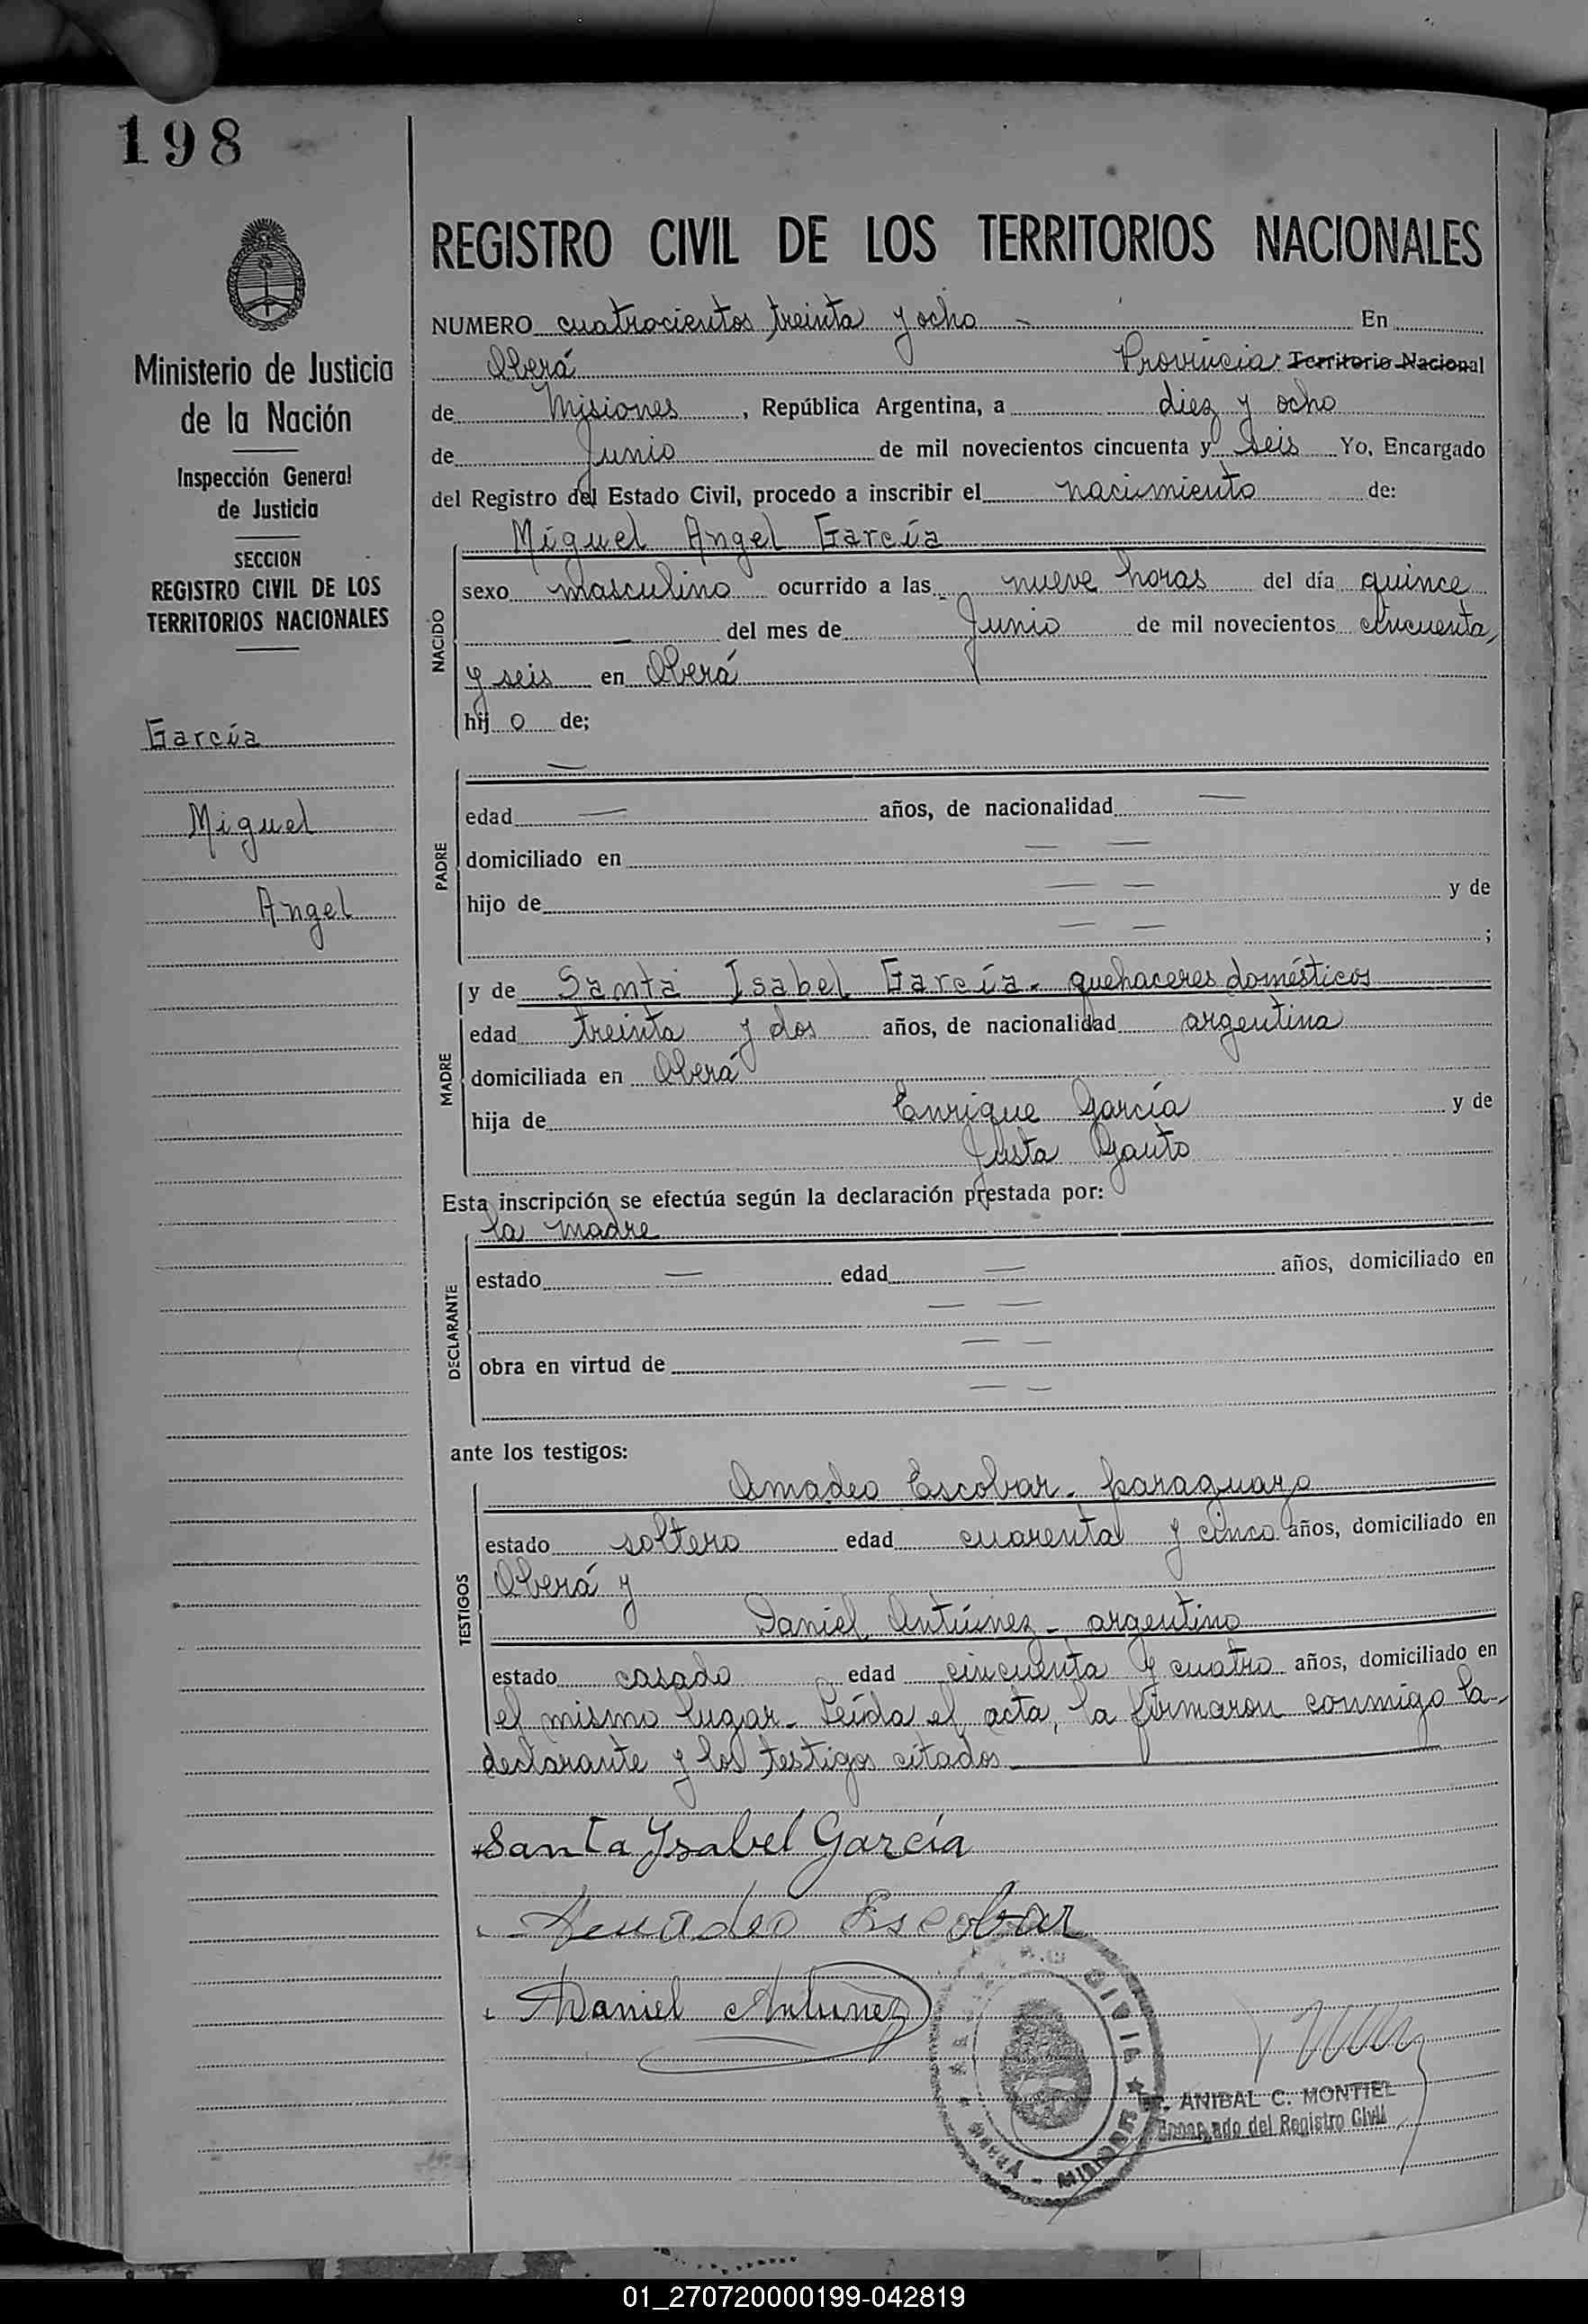 198
Ministerio de Justicia
de la Nación
Inspección General
de Justicia
SECCION
REGISTRO CIVIL DE LOS
TERRITORIOS NACIONALES
García
Miguel
Angel
REGISTRO CIVIL DE LOS TERRITORIOS NACIONALES
NUMERO cuatrocientos treinta y ocho - En
Oberá Provincia Territorio Nacional
de Misiones, República Argentina, a diez y ocho
de Junio de mil novecientos cincuenta y seis Yo, Encargado
del Registro del Estado Civil, procedo a inscribir el nacimiento de:
NACIDO
Miguel Angel García
sexo masculino ocurrido a las nueve horas del día quince
— del mes de Junio de mil novecientos cincuenta
y seis en Oberá
hij o de;
PADRE
—
edad — años, de nacionalidad —
domiciliado en — —
hijo de — — y de
— — ;
MADRE
y de Santa Isabel García - quehaceres domésticos
edad treinta y dos años, de nacionalidad argentina
domiciliada en Oberá
hija de Enrique García y de
Justa Gauto
Esta inscripción se efectúa según la declaración prestada por:
DECLARANTE
la madre
estado — edad — años, domiciliado en
— —
obra en virtud de — —
— —
ante los testigos:
TESTIGOS
Amadeo Escobar - paraguayo
estado soltero edad cuarenta y cinco años, domiciliado en
Oberá y
Daniel Antúnez - argentino
estado casado edad cincuenta y cuatro años, domiciliado en
el mismo lugar - Leída el acta, la firmaron conmigo la
declarante y los testigos citados
Santa Ysabel García
Amadeo Escobar
Daniel Antunez
CIVIL
OBERÁ - MISIONES
ANIBAL C. MONTIEL
Encargado del Registro Civil
01_270720000199-042819